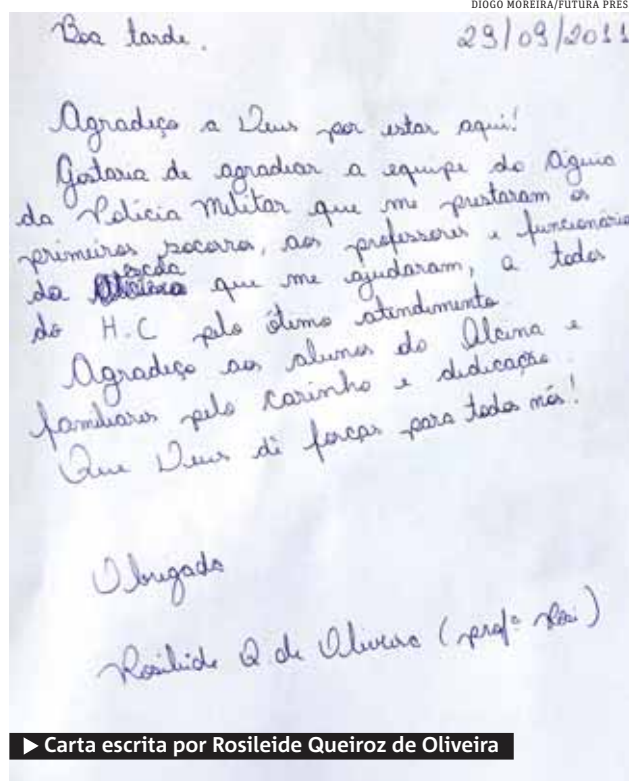 DIOGO MOREIRA/FUTURA PRES
Boa tarde. 29/09/2011
Agradeço a Deus por estar aqui!
Gostaria de agradecer a equipe do Águia
da Polícia Militar que me prestaram os
primeiros socorros, aos professores e funcionário
da escola que me ajudaram, a todos
do H.C pelo ótimo atendimento.
Agradeço aos alunos do Alcina e
familiares pelo carinho e dedicação.
Que Deus dê forças para todos nós!
Obrigada
Rosileide Q de Oliveira (profª Rosi)
▶ Carta escrita por Rosileide Queiroz de Oliveira